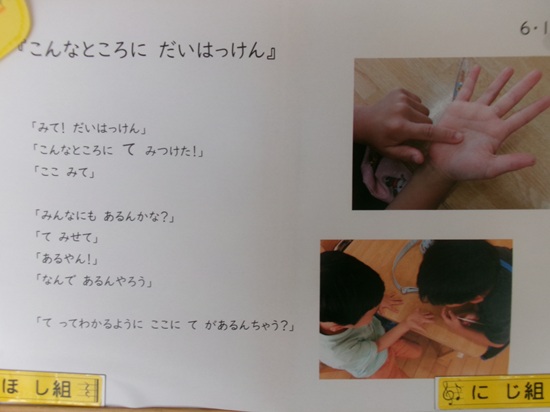 『こんなところに だいはっけん』
6・1
「みて! だいはっけん」
「こんなところに て みつけた!」
「ここ みて」
「みんなにも あるんかな?」
「て みせて」
「あるやん!」
「なんで あるんやろう」
「て ってわかるように ここに て があるんちゃう?」
ほし組
にじ組